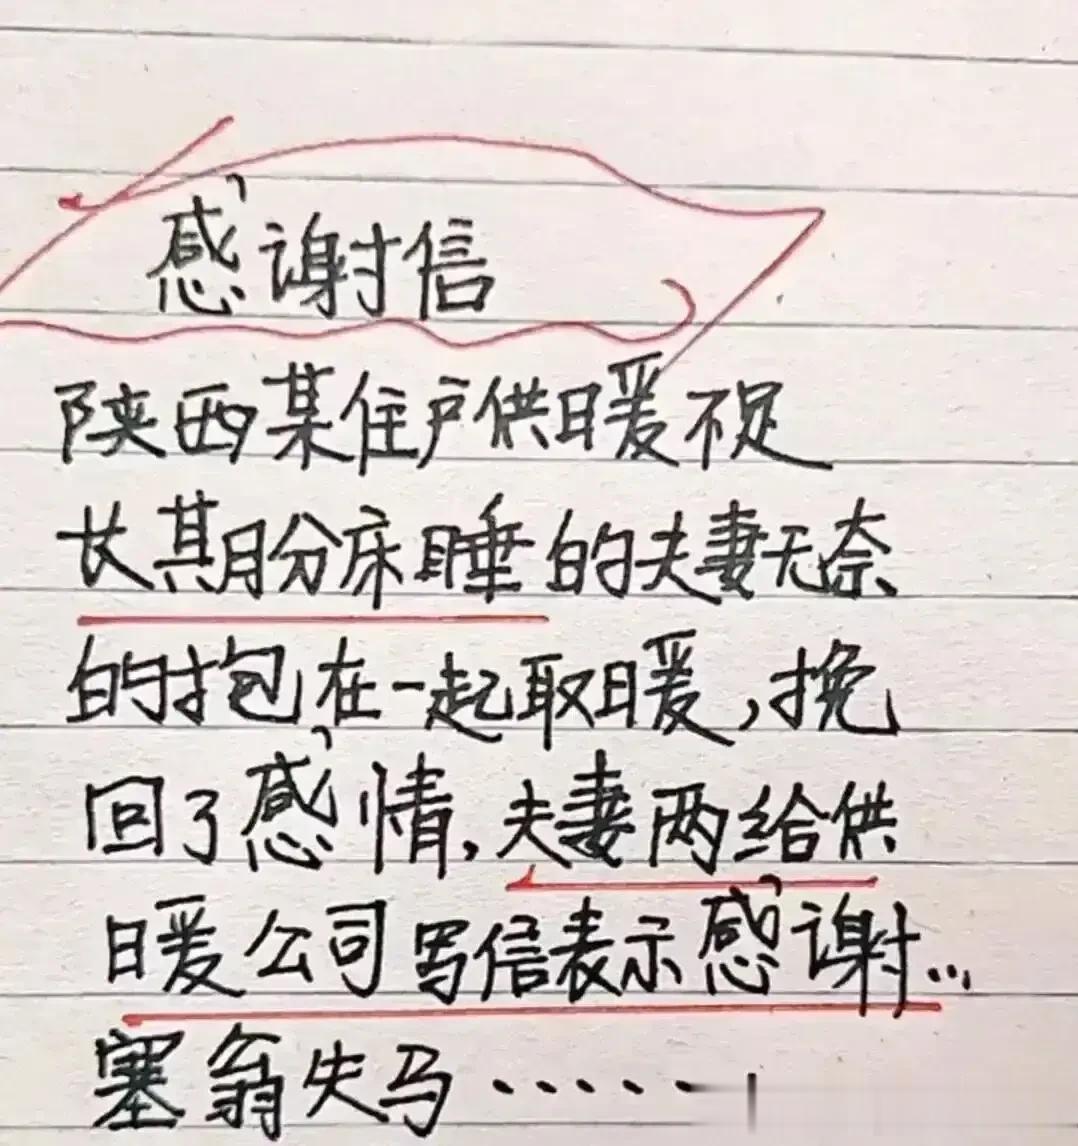 感谢信
陕西某住户供暖不足
长期分床睡的夫妻无奈
的抱在一起取暖,挽
回了感情,夫妻两给供
暖公司写信表示感谢...
塞翁失马······